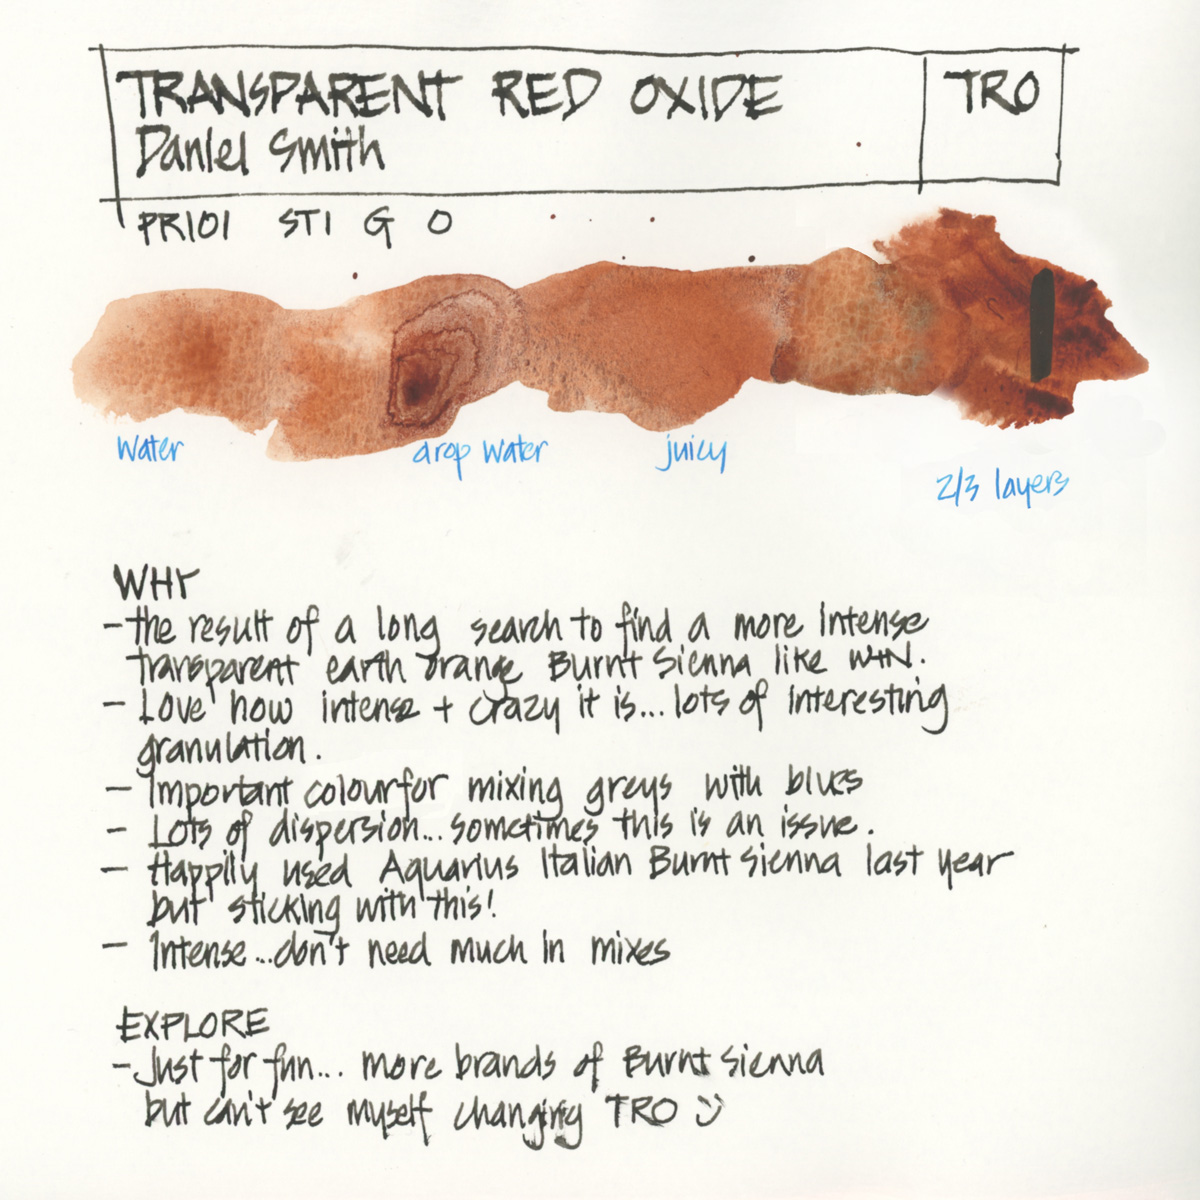 TRANSPARENT RED OXIDE
TRO
Daniel Smith
PR101 ST1 G O
water
drop water
juicy
2/3 layers
WHY
- the result of a long search to find a more intense
transparent earth orange Burnt Sienna like W+N.
- Love how intense + crazy it is... lots of interesting
granulation.
- Important colour for mixing greys with blues
- Lots of dispersion... sometimes this is an issue.
- Happily used Aquarius Italian Burnt Sienna last year
but sticking with this!
- Intense... don't need much in mixes
EXPLORE
- Just for fun... more brands of Burnt Sienna
but can't see myself changing TRO